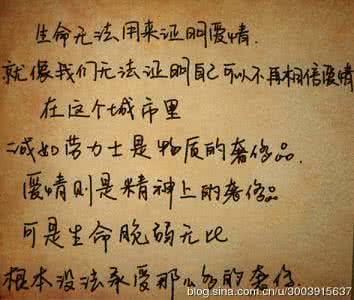 生命无法用来证明爱情.
就像我们无法证明自己可以不再相信爱情
在这个城市里
诚如劳力士是物质的奢侈品.
爱情则是精神上的奢侈品
可是生命脆弱无比
根本没法承受那么多的奢侈
blog.sina.com.cn/u/3003915637